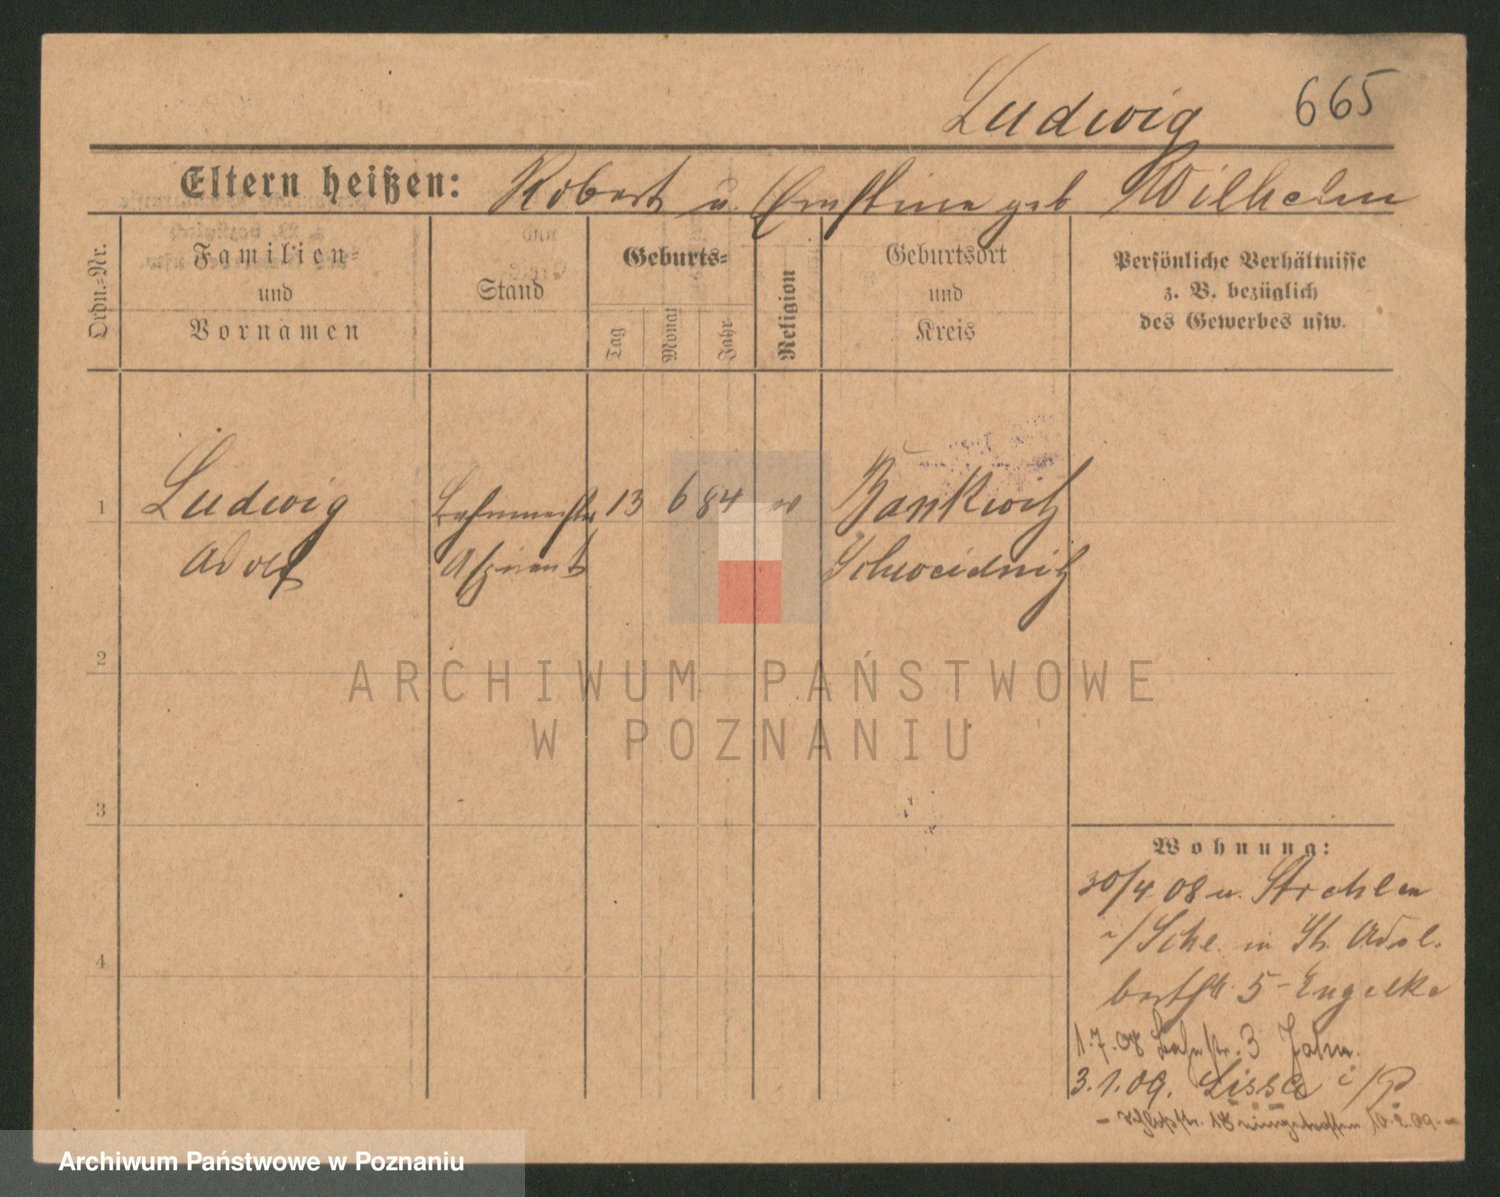 Ludwig 665
Eltern heißen: Robert u. Ernstine geb Wilhelm
Ordn.-Nr.
Familien-
und
Vornamen
Stand
Geburts-
Tag
Monat
Jahr
Religion
Geburtsort
und
Kreis
Persönliche Verhältnisse
z. B. bezüglich
des Gewerbes usw.
1 Ludwig Bahnmeister 13 6 84 Bankwitz
Adolf Aspirant Schweidnitz
2
3
4
Wohnung:
30/4 08 u. Strehlen
i/Schl. in St. Adal-
bertstr. 5 - Engelke
1.7.08 Bahnstr. 3 Jahn.
3.1.09. Lissa i/P
18 eingetroffen 10.2.09. -
ARCHIWUM PAŃSTWOWE
W POZNANIU
Archiwum Państwowe w Poznaniu